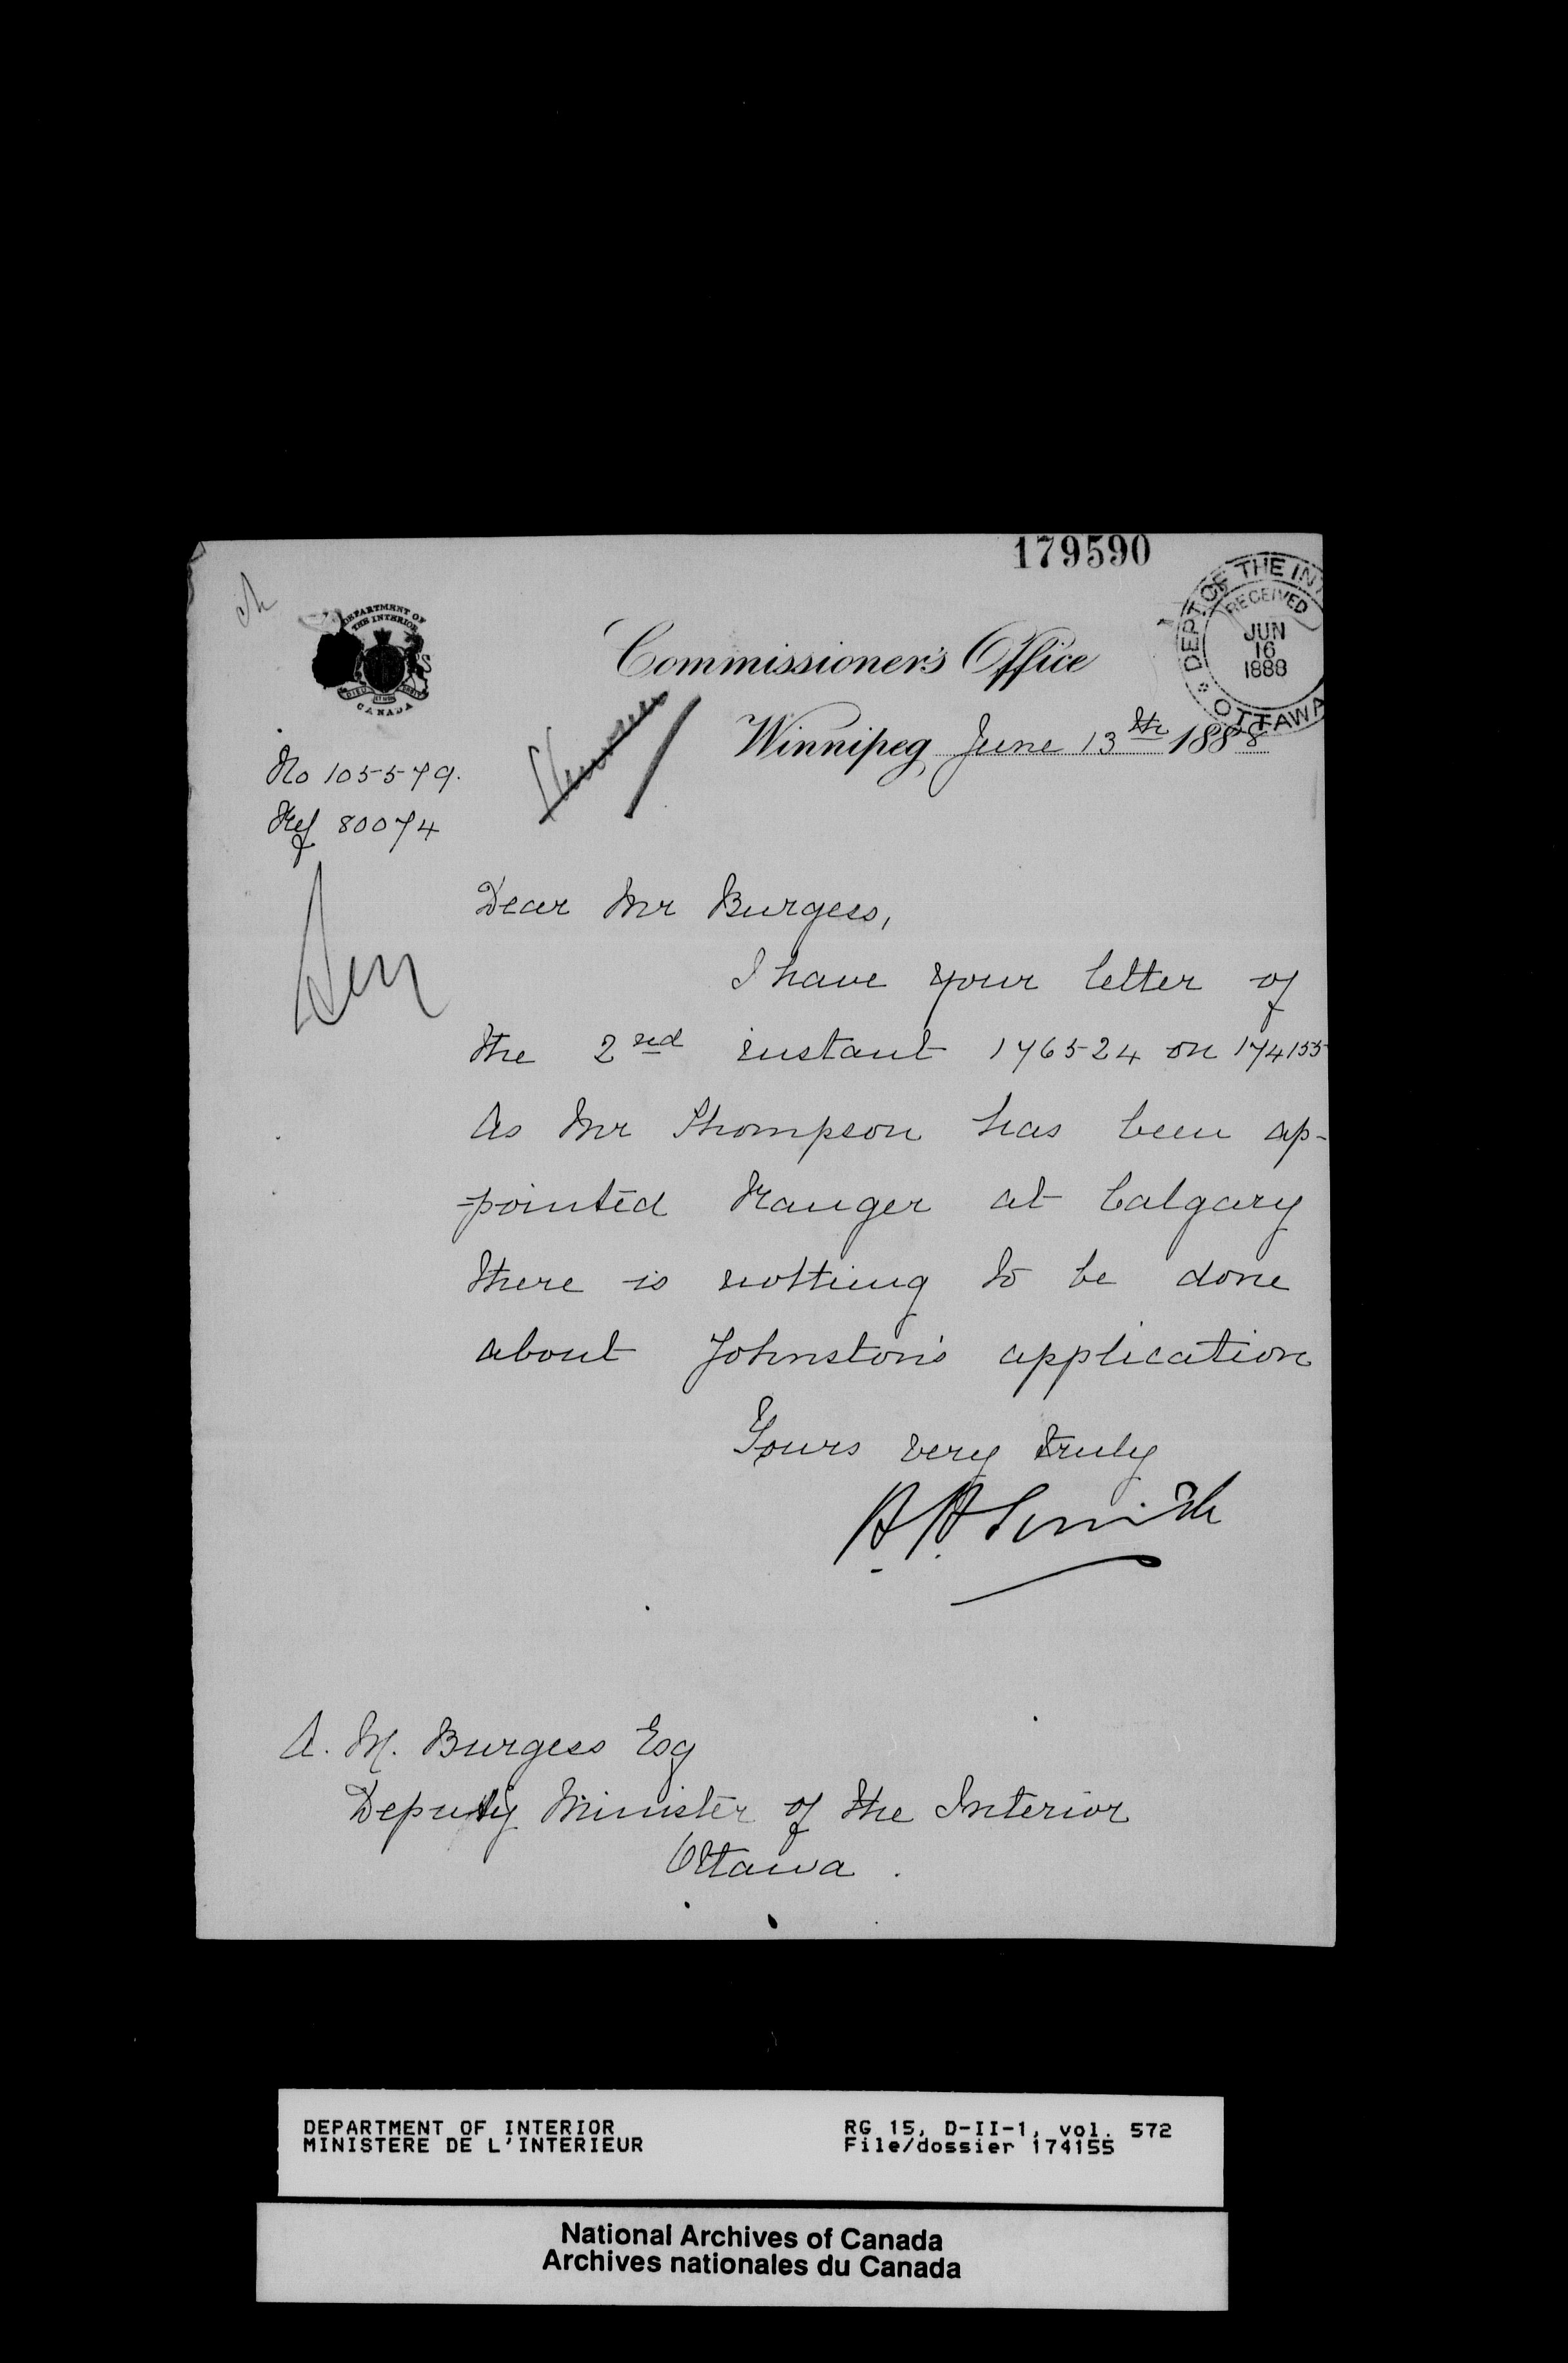 179590
DEPT. OF THE INT
RECEIVED
JUN
16
1888
OTTAWA
DEPARTMENT OF
THE INTERIOR
CANADA
Commissioner's Office
Winnipeg, June 13th 1888
No 105579.
Ref 80074
Dear Mr Burgess,
I have your letter of
the 2nd instant 176524 on 174155
As Mr Thompson has been ap-
-pointed Ranger at Calgary
there is nothing to be done
about Johnston's application
Yours very truly
H. H. Smith
A. M. Burgess Esq
Deputy Minister of the Interior
Ottawa.
DEPARTMENT OF INTERIOR
MINISTERE DE L'INTERIEUR
RG 15, D-II-1, vol. 572
File/dossier 174155
National Archives of Canada
Archives nationales du Canada